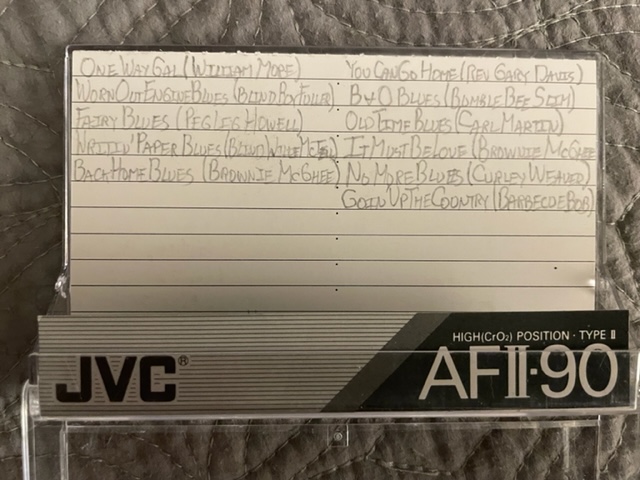 ONE WAY GAL (WILLIAM MORE)
WORN OUT ENGINE BLUES (BLIND BOY FULLER)
FAIRY BLUES (PEG LEG HOWELL)
WRITIN' PAPER BLUES (BLIND WILLIE McTELL)
BACK HOME BLUES (BROWNIE McGHEE)
YOU CAN GO HOME (REV GARY DAVIS)
B & O BLUES (BUMBLE BEE SLIM)
OLD TIME BLUES (CARL MARTIN)
IT MUST BE LOVE (BROWNIE McGHEE
NO MORE BLUES (CURLEY WEAVER)
GOIN UP THE COUNTRY (BARBECUE BOB)
HIGH (CrO₂) POSITION · TYPE II
JVC®
AFII·90